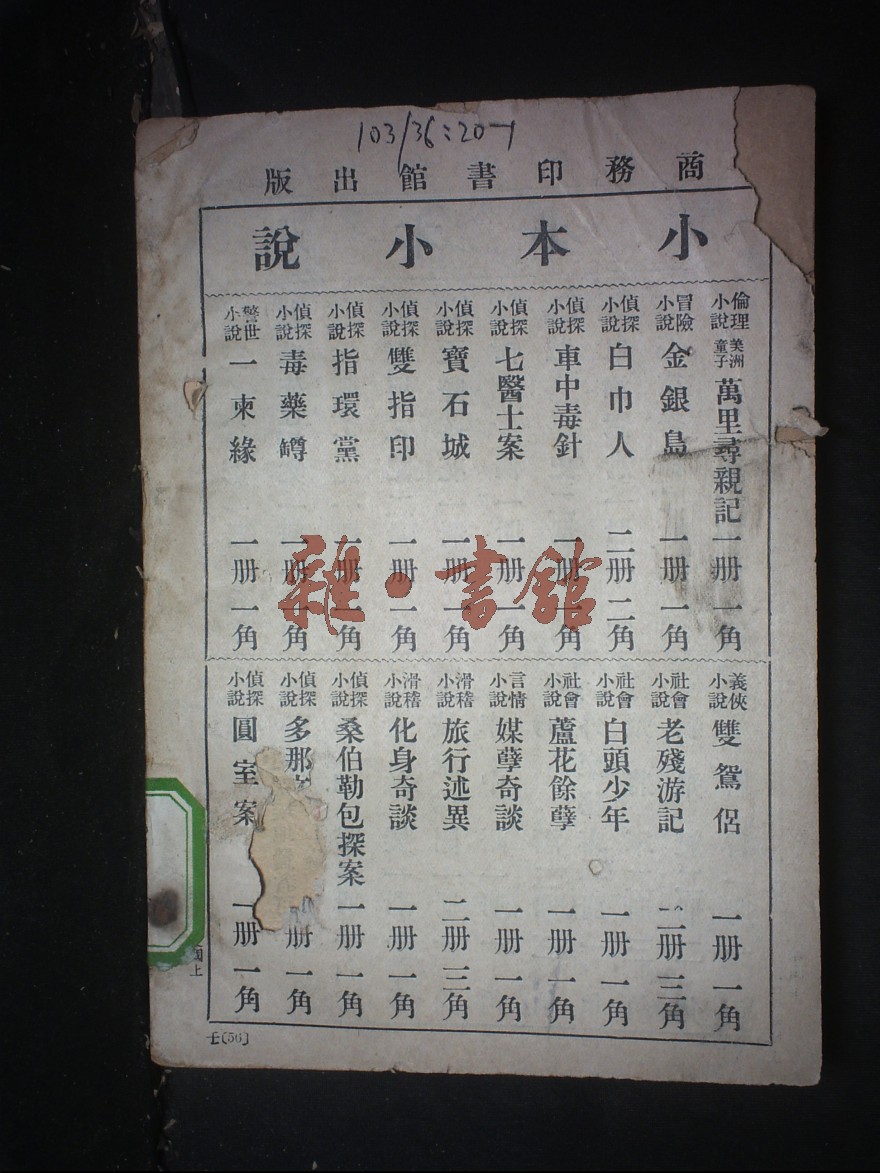 103/36:20-1
商務印書館出版
小本小說
倫理小說 美洲童子 萬里尋親記 一册 一角
冒險小說 金銀島 一册 一角
偵探小說 白巾人 二册 二角
偵探小說 車中毒針 一册 一角
偵探小說 七醫士案 一册 一角
偵探小說 寶石城 一册 一角
偵探小說 雙指印 一册 一角
偵探小說 指環黨 一册 一角
偵探小說 毒藥罇 一册 一角
警世小說 一柬緣 一册 一角
義俠小說 雙鴛侶 一册 一角
社會小說 老殘游記 二册 三角
社會小說 白頭少年 一册 一角
社會小說 蘆花餘孽 一册 一角
言情小說 媒孽奇談 一册 一角
滑稽小說 旅行述異 二册 三角
滑稽小說 化身奇談 一册 一角
偵探小說 桑伯勒包探案 一册 一角
偵探小說 多那 册 一角
偵探小說 圓室案 一册 一角
雜·書館